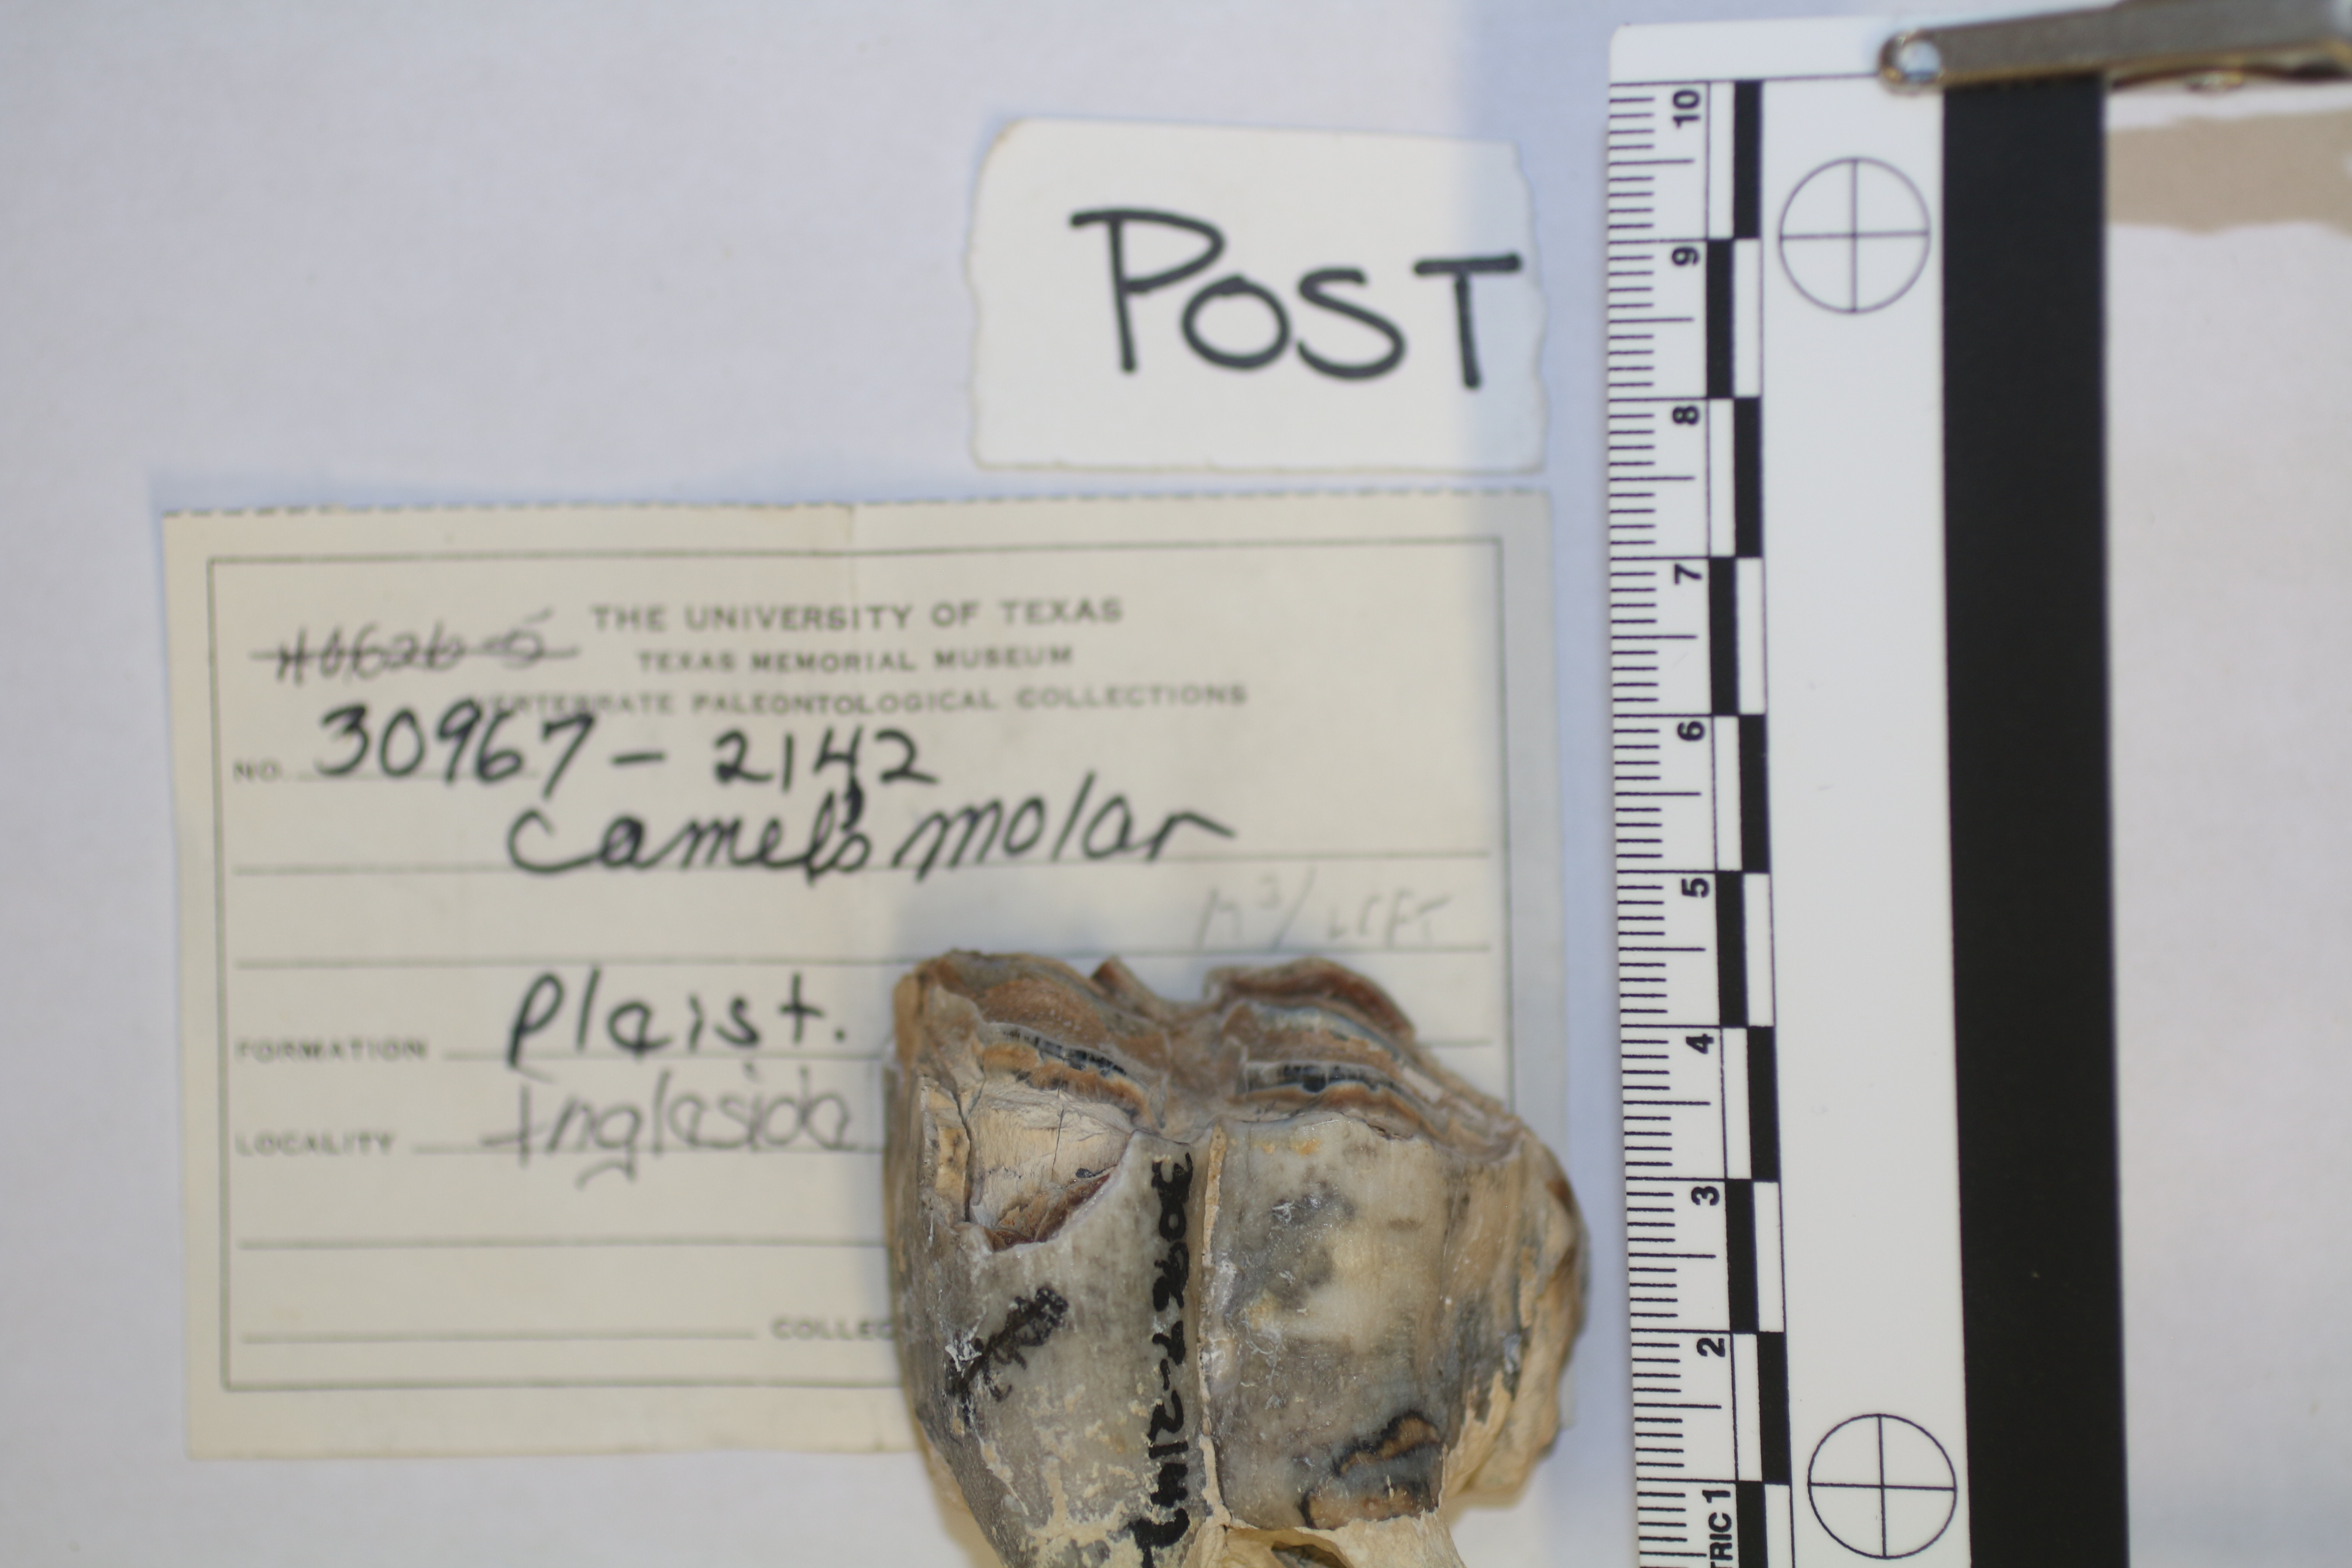 POST
THE UNIVERSITY OF TEXAS
TEXAS MEMORIAL MUSEUM
VERTEBRATE PALEONTOLOGICAL COLLECTIONS
NO. 30967-2142
Camel's molar
M3/ LEFT
FORMATION Pleist.
LOCALITY Ingleside
COLLEC
30967-2142
10
9
8
7
6
5
4
3
2
TRIC 1